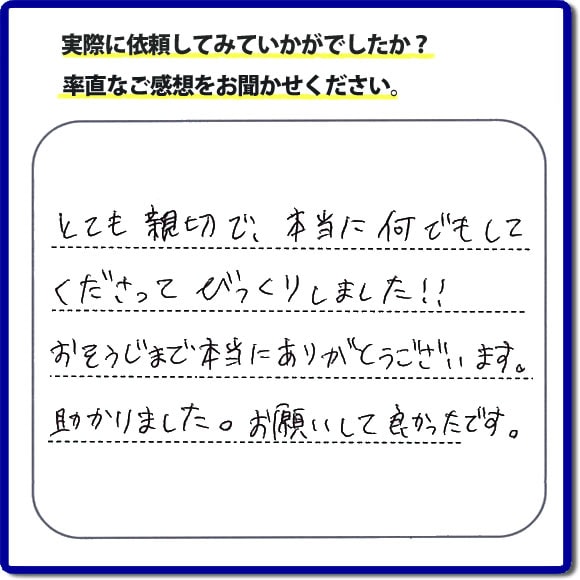 実際に依頼してみていかがでしたか？
率直なご感想をお聞かせください。
とても親切で、本当に何でもして
くださってびっくりしました!!
おそうじまで本当にありがとうございます。
助かりました。お願いして良かったです。